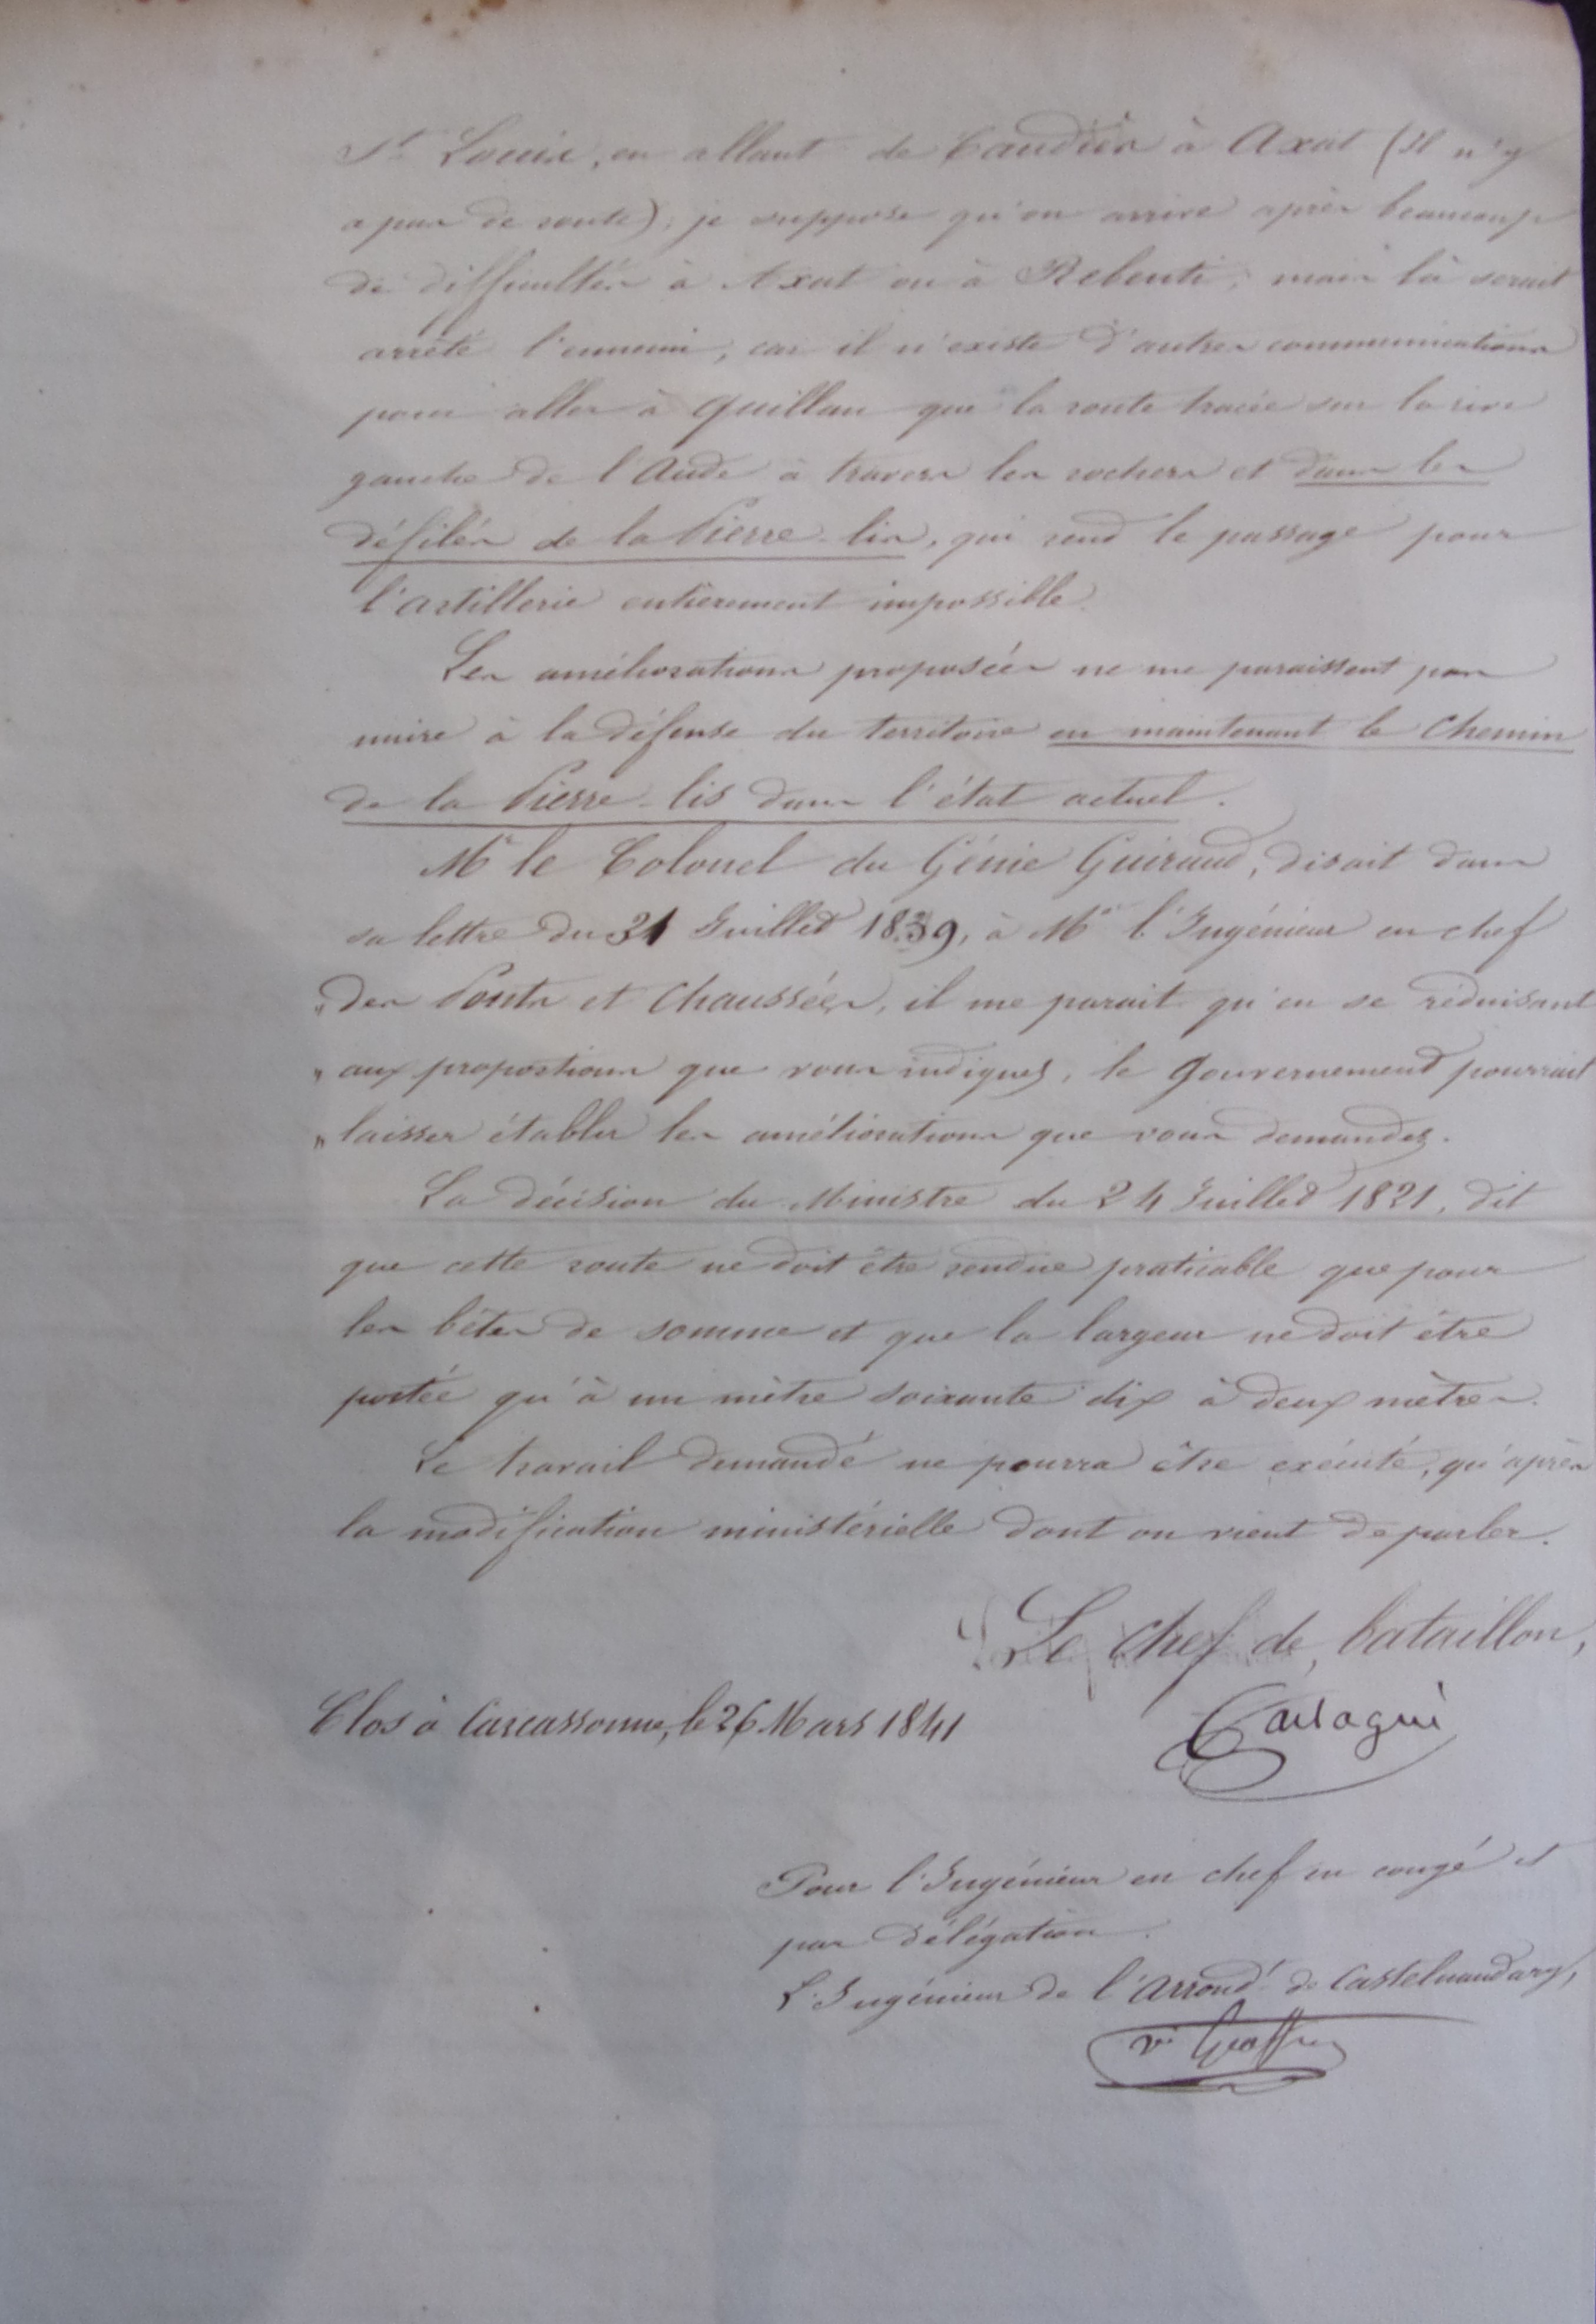 St Louis, en allant de Caudiès à Axat (il n'y
a pas de route), je suppose qu'on arrive après beaucoup
de difficultés à Axat ou à Rebenti, mais là serait
arrêté l'ennemi, car il n'existe d'autres communications
pour aller à Quillan que la route tracée sur la rive
gauche de l'Aude à travers les rochers et dans les
défilés de la Pierre-lis, qui rend le passage pour
l'artillerie entièrement impossible.
Les améliorations proposées ne me paraissent pas
nuire à la défense du territoire en maintenant le chemin
de la Pierre-lis dans l'état actuel.
Mr le Colonel du Génie Guiraud, disait dans
sa lettre du 31 Juillet 1839, à Mr l'Ingénieur en chef
" des Ponts et Chaussées, il me parait qu'en se réduisant
" aux proportions que vous indiquez, le Gouvernement pourrait
" laisser établir les améliorations que vous demandez.
La décision du Ministre du 24 Juillet 1821, dit
que cette route ne doit être rendue praticable que pour
les bêtes de somme et que la largeur ne doit être
portée qu'à un mètre soixante dix à deux mètres.
Le travail demandé ne pourra être exécuté, qu'après
la modification ministérielle dont on vient de parler.
Le chef de bataillon,
Clos à Carcassonne, le 26 Mars 1841
Pour l'Ingénieur en chef en congé et
par délégation.
L'Ingénieur de l'Arrondt de Castelnaudary,